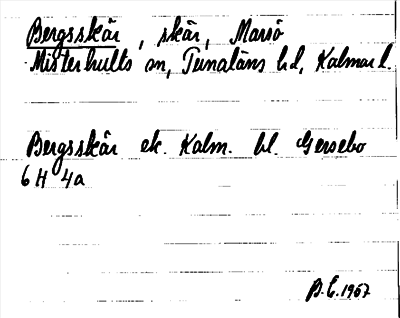 Bergsskär, skär, Marsö
Misterhults sn, Tunaläns hd, Kalmar l.
Bergsskär ek. Kalm. bl. Gersebo
6 H 4a
B.E. 1967